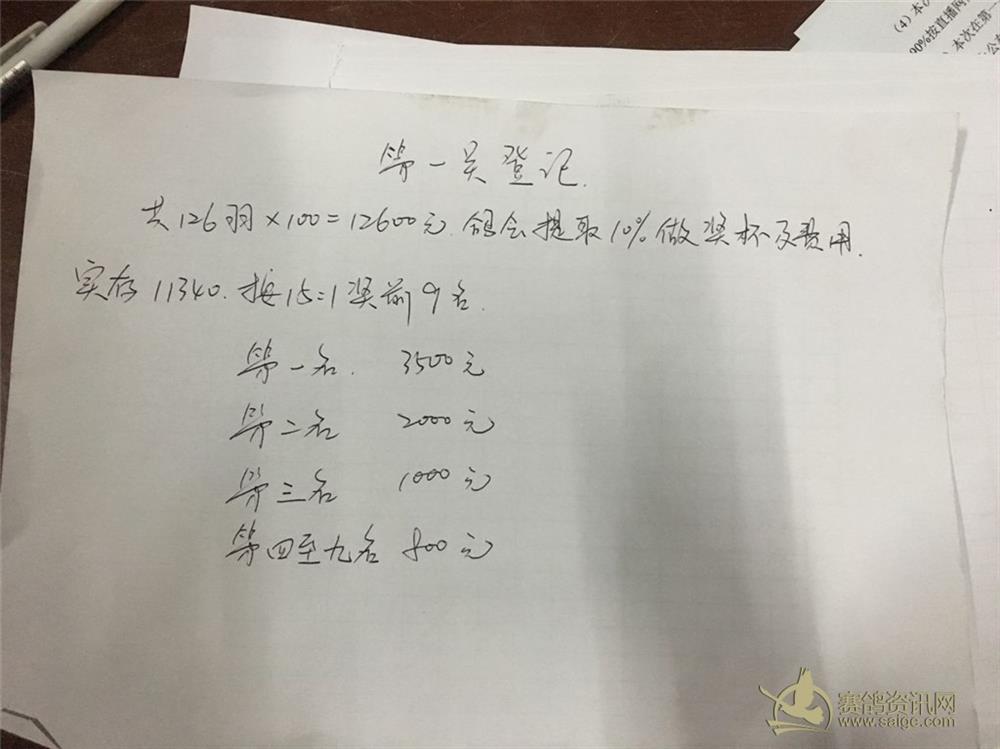 (4)本次
90%按直播网
本次在第一
第一关登记.
共126羽×100=12600元.鸽会提取10%做奖杯及费用.
实存11340.按15=1奖前9名.
第一名. 3500元
第二名 2000元
第三名 1000元
第四至九名 800元
赛鸽资讯网
www.saigc.com